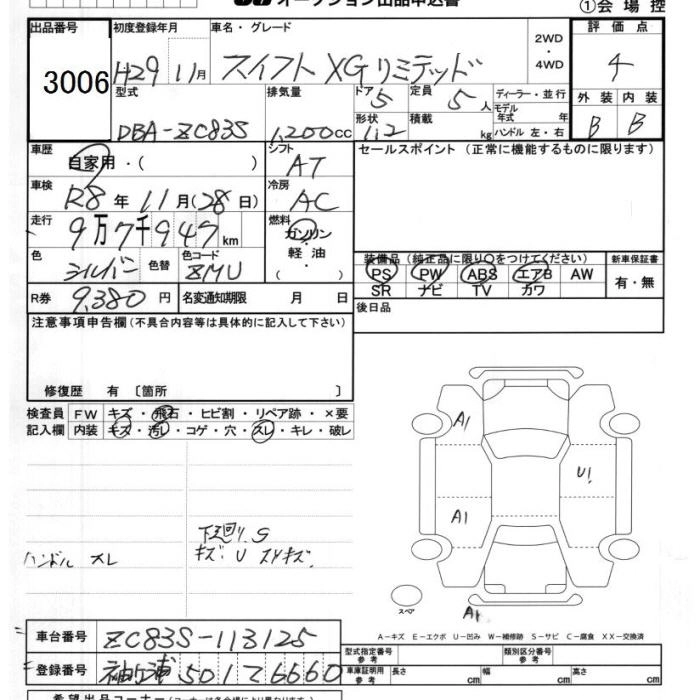 オークション出品申込書
①会場控
出品番号
3006
初度登録年月
H29 11月
車名・グレード
スイフト XGリミテッド
2WD
・
4WD
評価点
4
型式
DBA-ZC83S
排気量
1,200cc
ドア 5
形状 1,2
定員 5人
積載 kg
ディーラー・並行
モデル年式 年
ハンドル 左・右
外装 内装
B B
車歴
自家用・( )
シフト
AT
セールスポイント (正常に機能するものに限ります)
車検
R8年11月(28日)
冷房
AC
走行
9万7千947km
燃料
ガソリン
軽油
( )
色
シルバー
色替
色コード
ZMU
装備品 (純正品に限り○をつけてください)
PS PW ABS エアB AW
SR ナビ TV カワ
新車保証書
有・無
R券 9,380円
名変通知期限 月 日
後日品
注意事項申告欄(不具合内容等は具体的に記入して下さい)
修復歴 有 〔箇所 〕
検査員 FW キズ・飛石・ヒビ割・リペア跡・×要
記入欄 内装 キズ・汚レ・コゲ・穴・スレ・キレ・破レ
A1
U1
A1
下廻り.S
キズ:U スリキズ.
ハンドル スレ
スペア
A1
A-キズ E-エクボ U-凹み W-補修跡 S-サビ C-腐食 XX-交換済
車台番号 ZC83S-113125
型式指定番号 参考
類別区分番号 参考
登録番号 袖ヶ浦 501 て 6660
車庫証明用 参考 長さ cm 幅 cm 高さ cm
希望出品コーナー